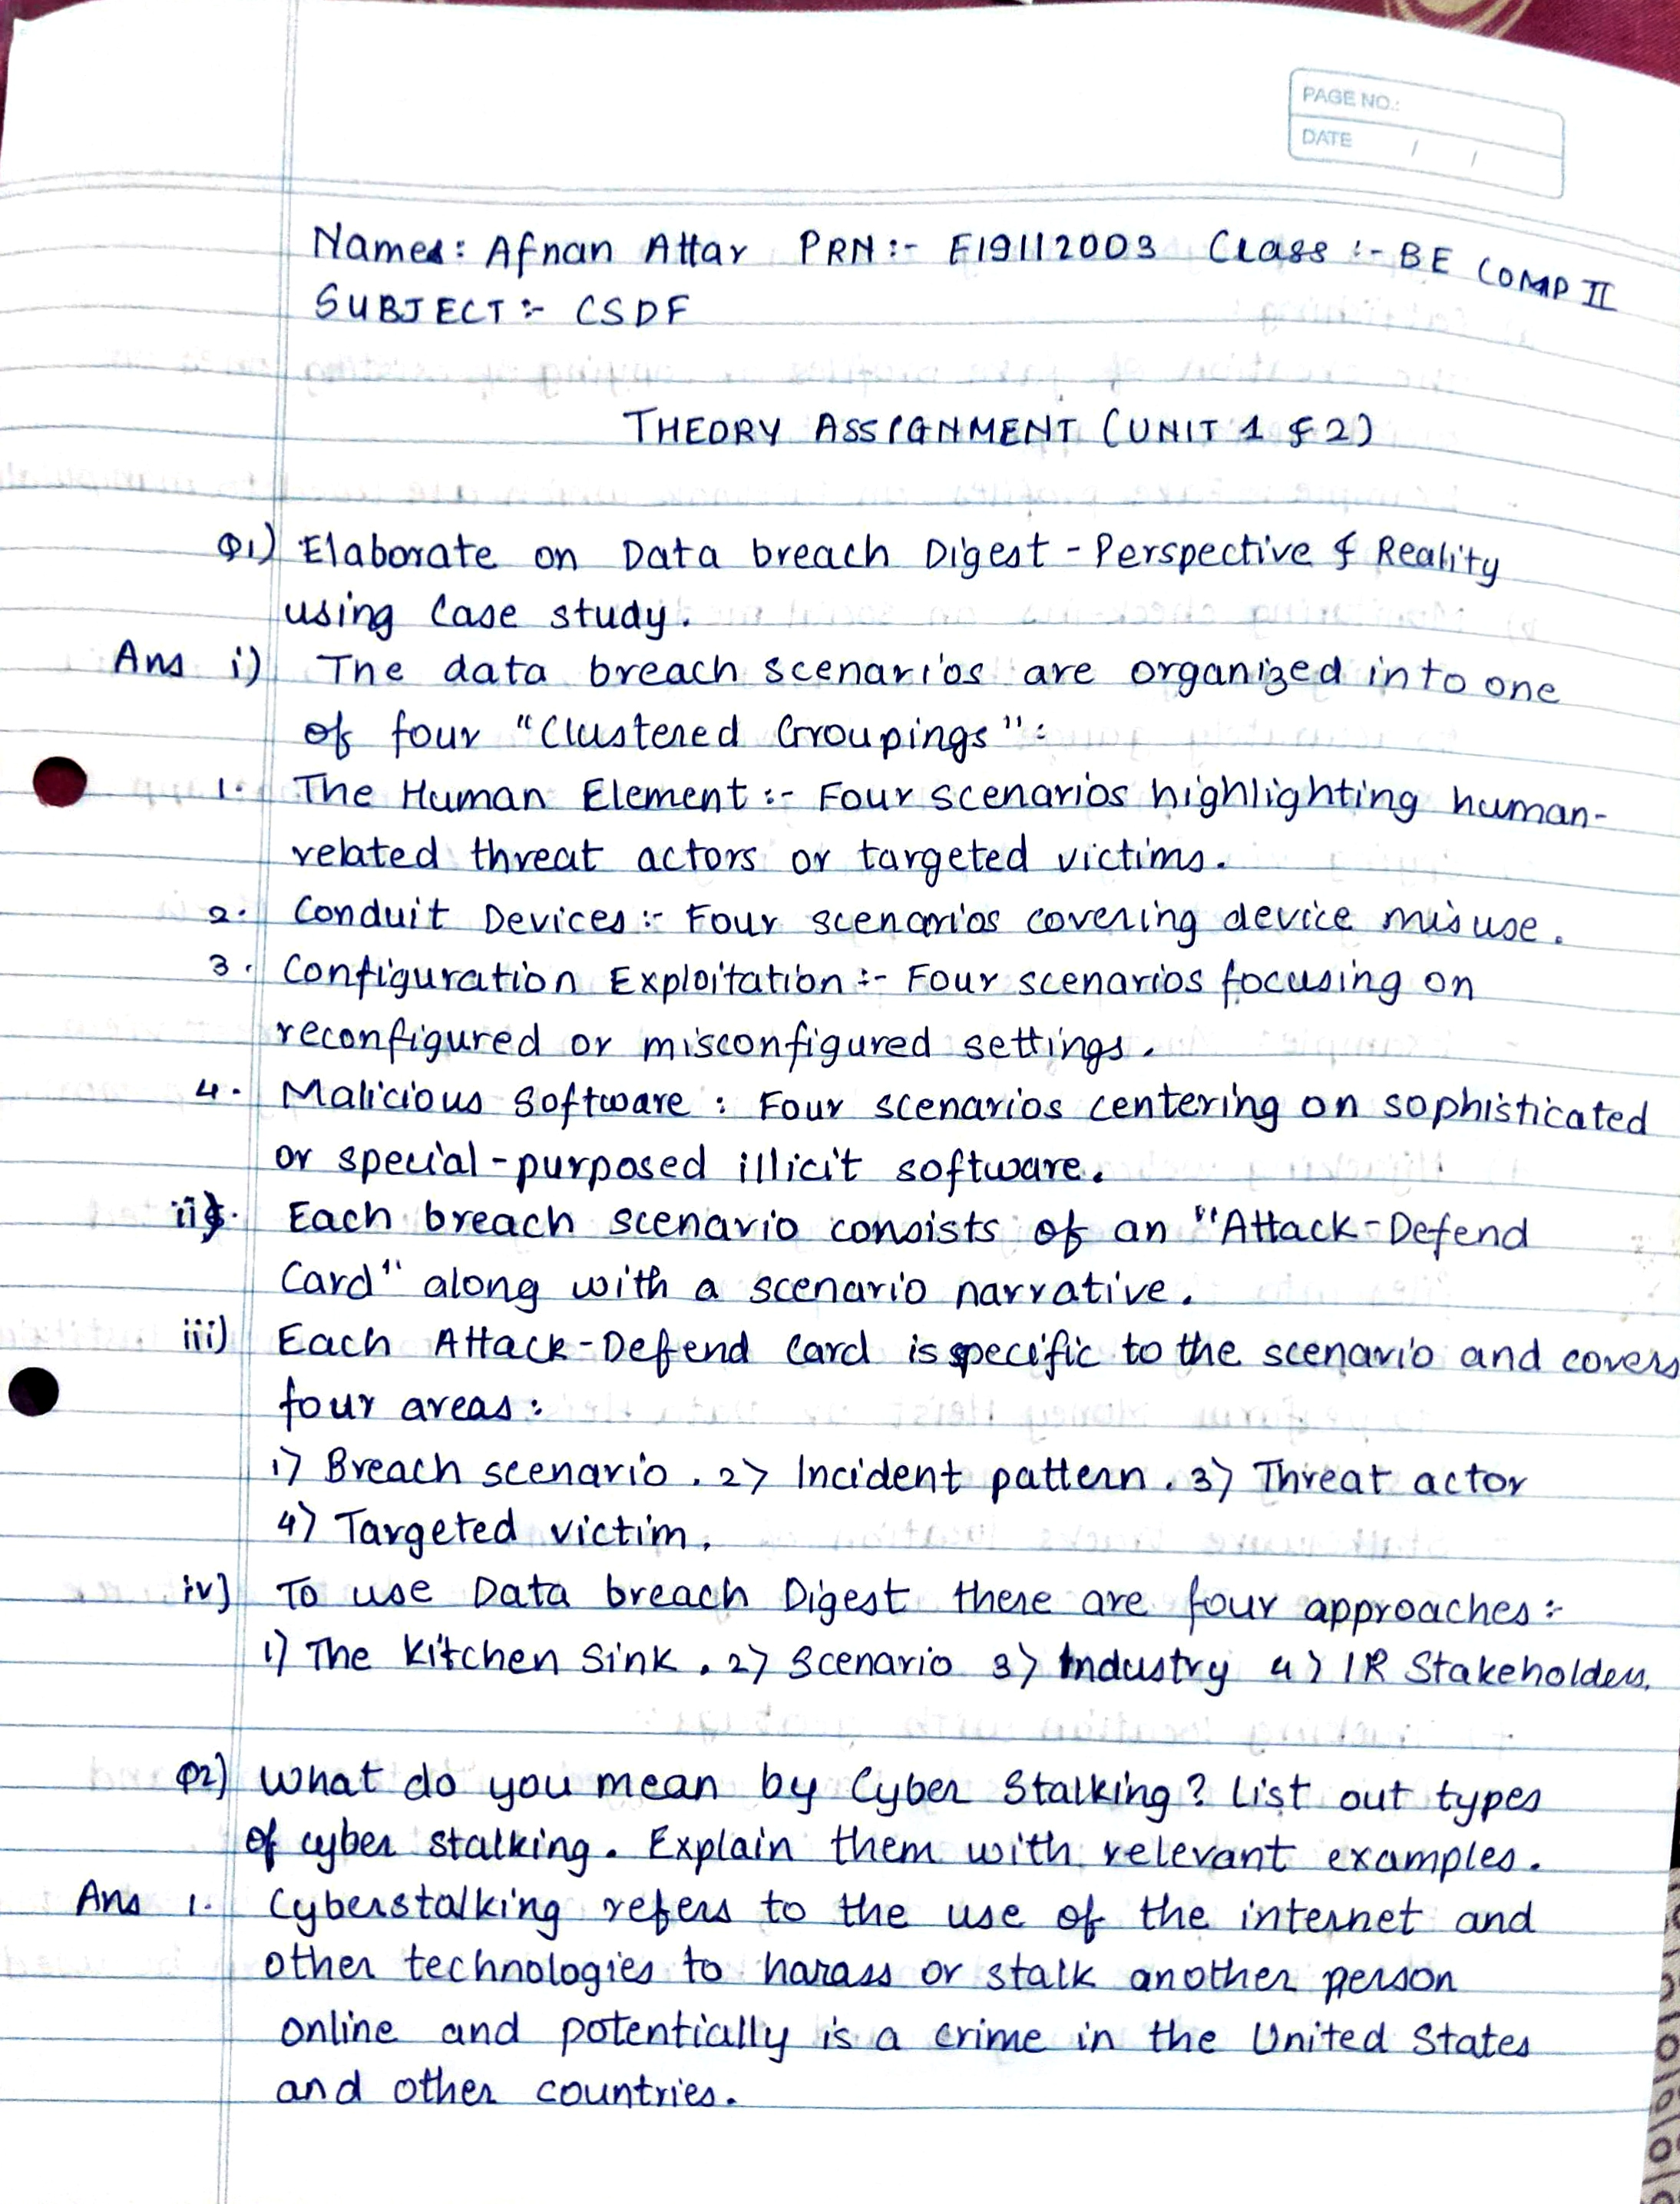 PAGE NO.:
DATE / /
Names: Afnan Attar PRN :- F19112003 Class :- BE COMP II
SUBJECT :- CSDF
THEORY ASSIGNMENT (UNIT 1 & 2)
Q1) Elaborate on Data breach Digest - Perspective & Reality
using Case study.
Ans i) The data breach scenarios are organized into one
of four "Clustered Groupings":
1. The Human Element :- Four scenarios highlighting human-
related threat actors or targeted victims.
2. Conduit Devices :- Four scenarios covering device misuse.
3. Configuration Exploitation :- Four scenarios focusing on
reconfigured or misconfigured settings.
4. Malicious Software : Four scenarios centering on sophisticated
or special-purposed illicit software.
ii). Each breach scenario consists of an "Attack-Defend
Card" along with a scenario narrative.
iii) Each Attack-Defend Card is specific to the scenario and covers
four areas:
1) Breach scenario. 2) Incident pattern. 3) Threat actor
4) Targeted victim.
iv) To use Data breach Digest there are four approaches :-
1) The Kitchen Sink. 2) Scenario 3) Industry 4) IR Stakeholders.
Q2) What do you mean by Cyber Stalking? List out types
of cyber stalking. Explain them with relevant examples.
Ans 1. Cyberstalking refers to the use of the internet and
other technologies to harass or stalk another person
online and potentially is a crime in the United States
and other countries.